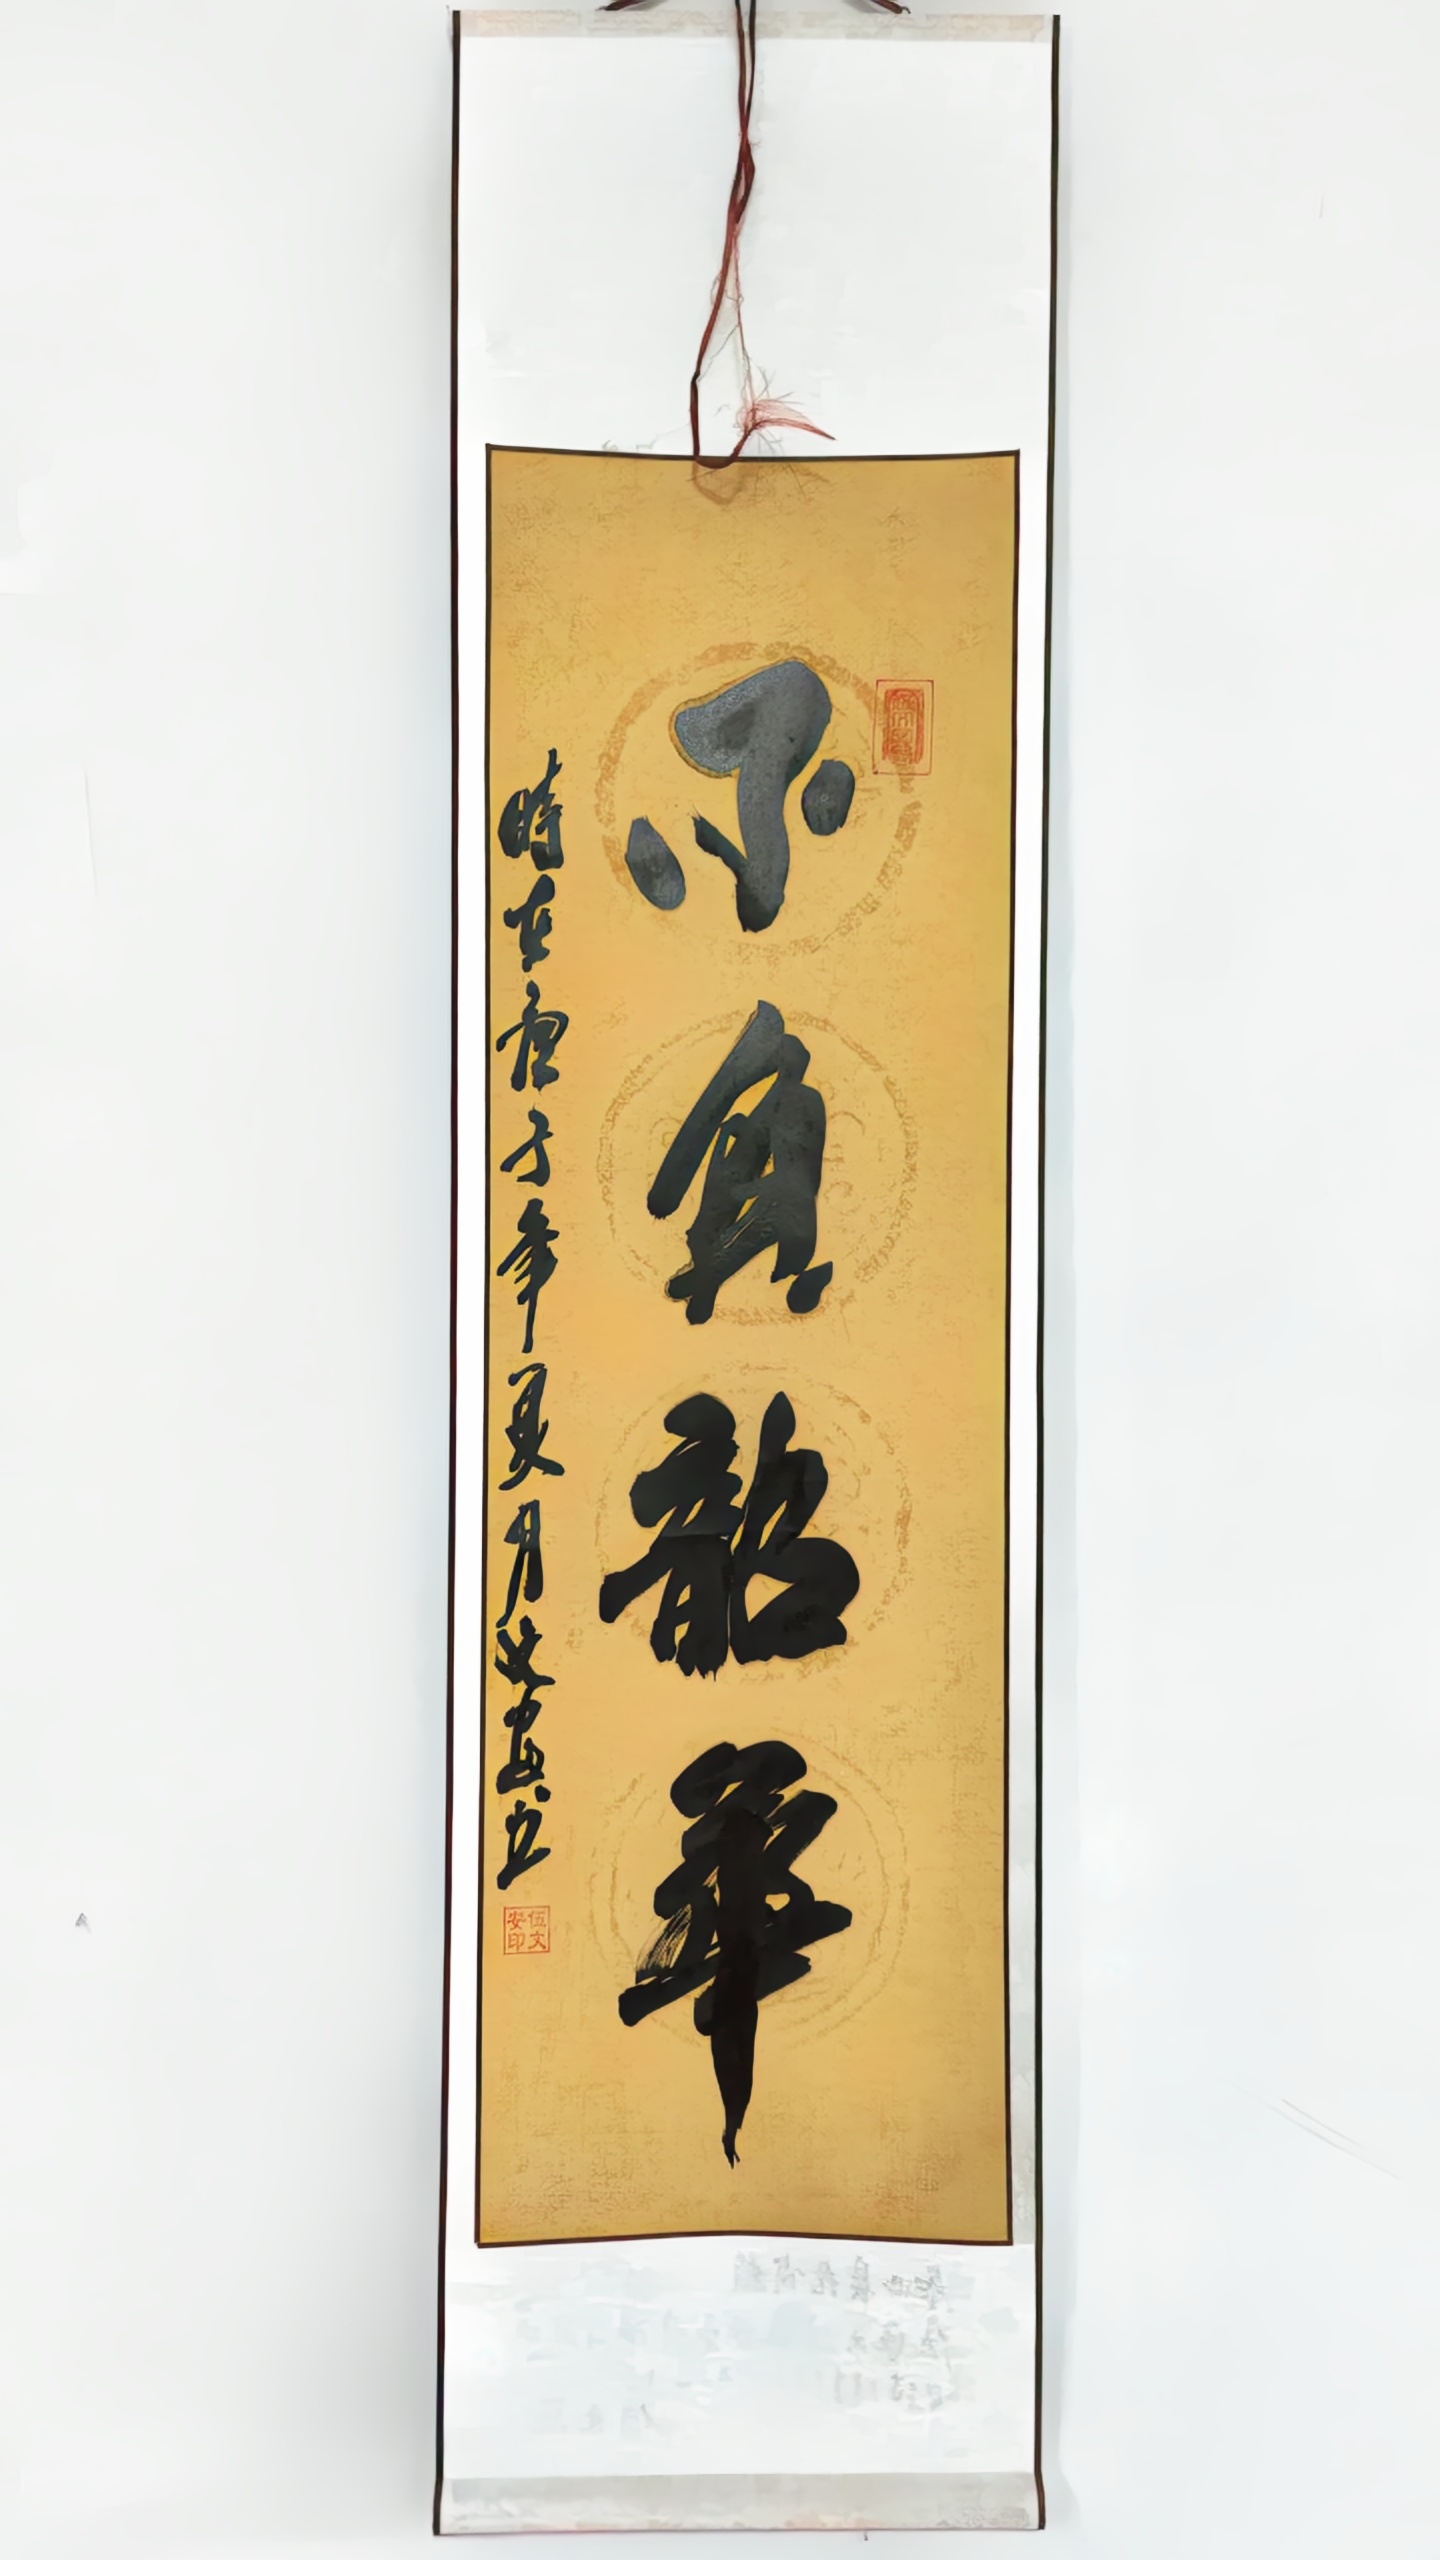 不负韶华
時在庚子年夏月文安书
伍文安印